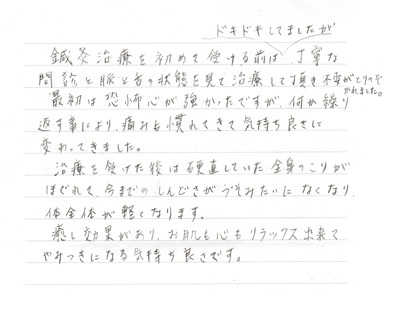 ドキドキしてましたが
鍼灸治療を初めて受ける前は、丁寧な
問診と脈と舌の状態を見て治療して頂き不安がとりのぞ
かれました。
最初は恐怖心が強かったですが、何か繰り
返す事により、痛みも慣れてきて気持ち良さに
変わってきました。
治療を受けた後は硬直していた全身のこりが
ほぐれて、今までのしんどさがうそみたいになくなり、
体全体が軽くなります。
癒し効果があり、お肌も心もリラックス出来て
やみつきになる気持ち良さです。